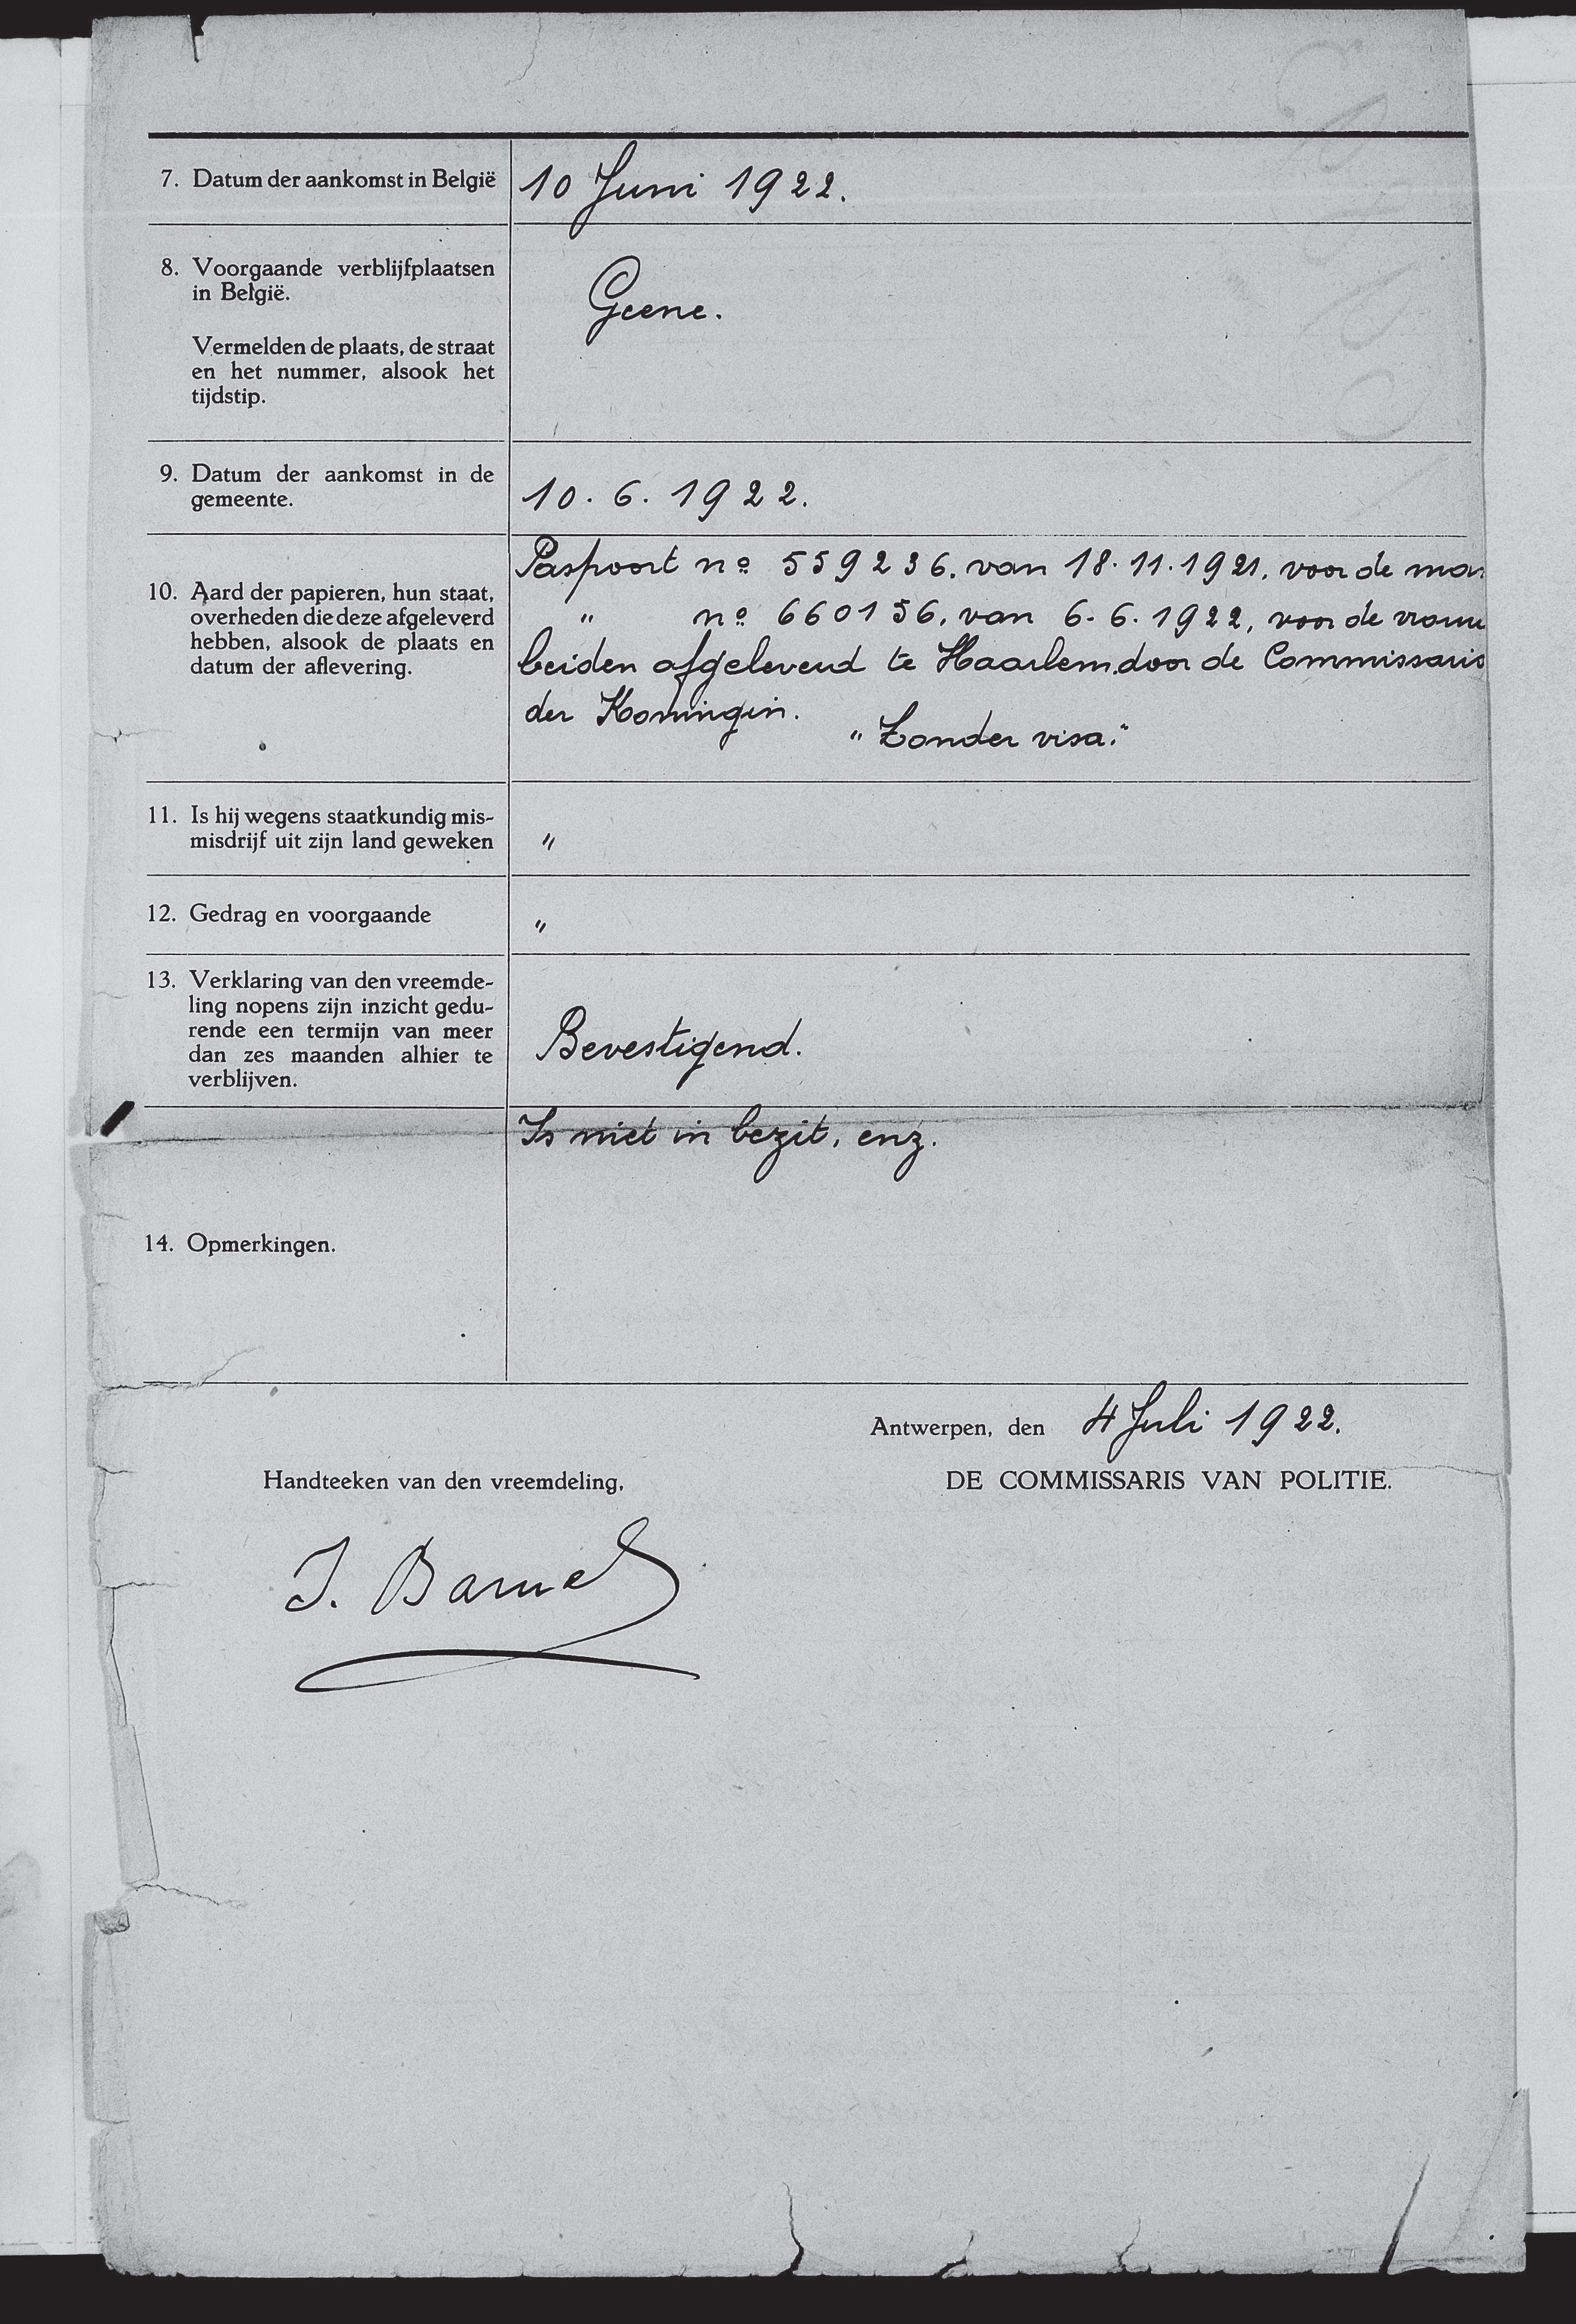 7. Datum der aankomst in België
10 Juni 1922.
8. Voorgaande verblijfplaatsen
in België.
Vermelden de plaats, de straat
en het nummer, alsook het
tijdstip.
Geene.
9. Datum der aankomst in de
gemeente.
10.6.1922.
10. Aard der papieren, hun staat,
overheden die deze afgeleverd
hebben, alsook de plaats en
datum der aflevering.
Paspoort nº 559236. van 18.11.1921. voor de man
" nº 660156. van 6.6.1922, voor de vrouw
beiden afgeleverd te Haarlem door de Commissaris
der Koningin.
"Zonder visa."
11. Is hij wegens staatkundig mis-
misdrijf uit zijn land geweken
"
12. Gedrag en voorgaande
"
13. Verklaring van den vreemde-
ling nopens zijn inzicht gedu-
rende een termijn van meer
dan zes maanden alhier te
verblijven.
Bevestigend.
Is niet in bezit, enz.
14. Opmerkingen.
Antwerpen, den 4 Juli 1922.
Handteeken van den vreemdeling,
DE COMMISSARIS VAN POLITIE.